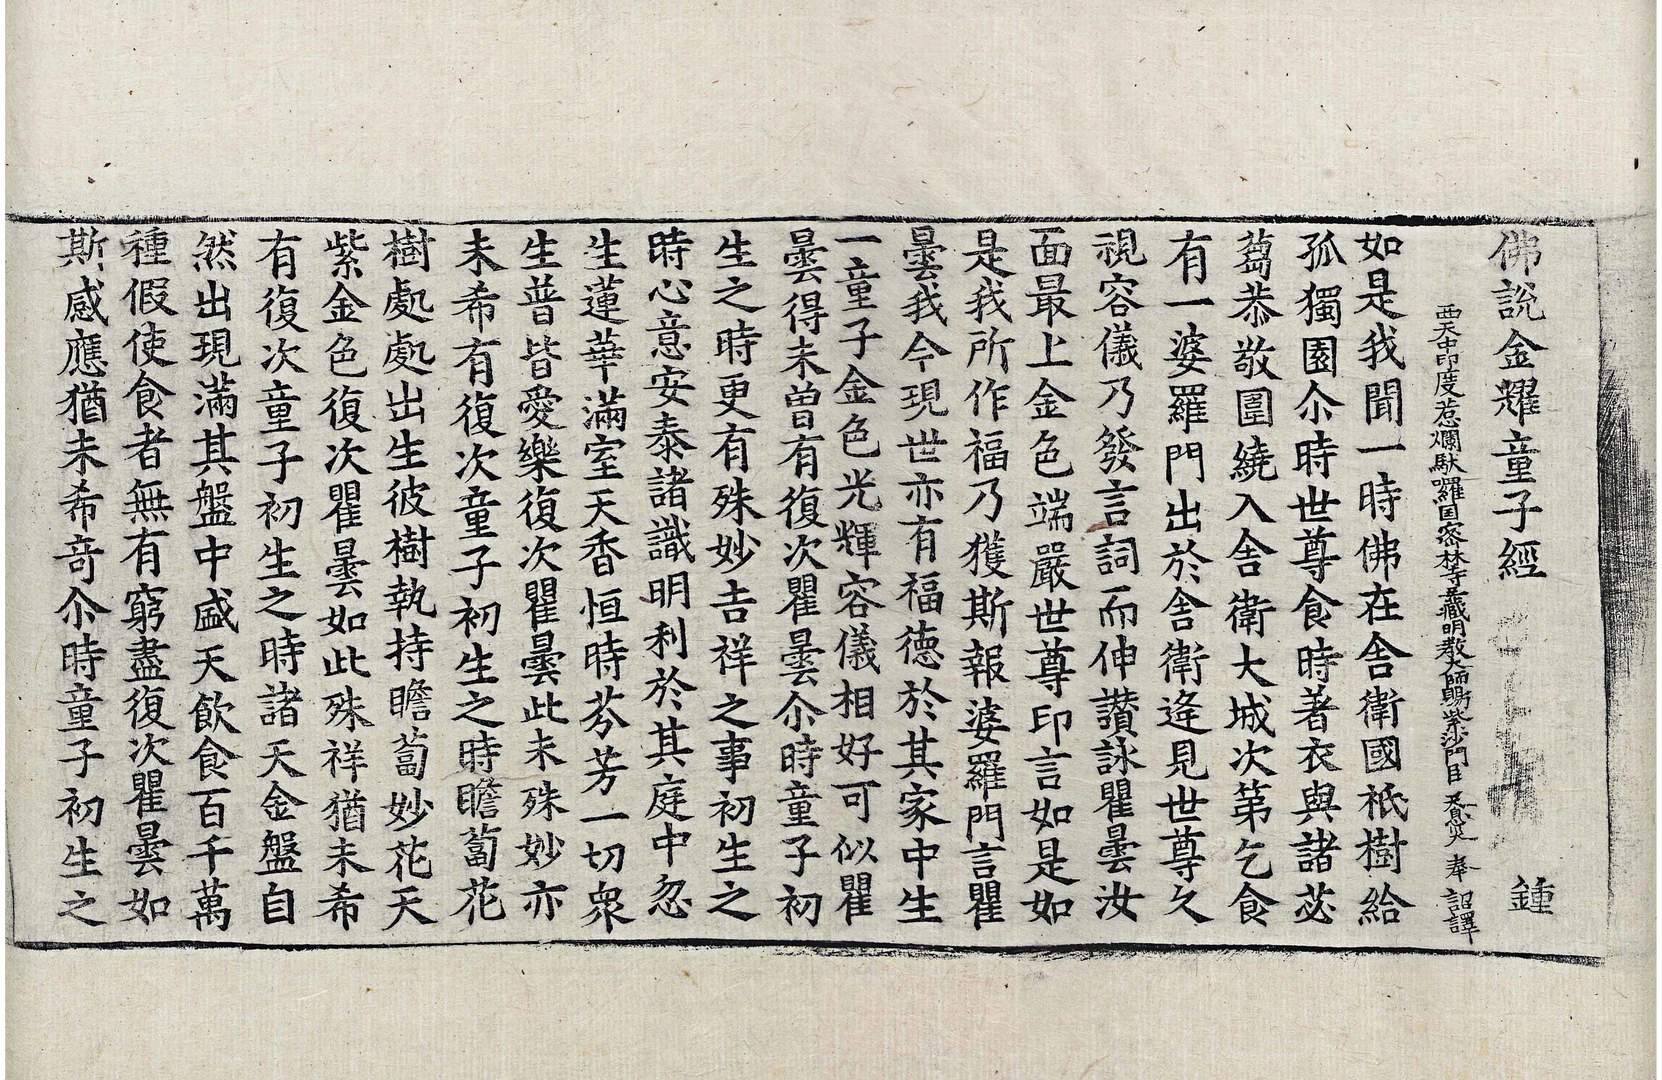 佛說金耀童子經 鍾
西天中印度惹爛馱囉國密林寺三藏明教大師賜紫沙門臣 天息災 奉 詔譯
如是我聞一時佛在舍衛國祇樹給
孤獨園尒時世尊食時著衣與諸苾
蒭恭敬圍繞入舍衛大城次第乞食
有一婆羅門出於舍衛逢見世尊久
視容儀乃發言詞而伸讚詠瞿曇汝
面最上金色端嚴世尊印言如是如
是我所作福乃獲斯報婆羅門言瞿
曇我今現世亦有福德於其家中生
一童子金色光輝容儀相好可似瞿
曇得未曾有復次瞿曇尒時童子初
生之時更有殊妙吉祥之事初生之
時心意安泰諸識明利於其庭中忽
生蓮華滿室天香恒時芬芳一切衆
生普皆愛樂復次瞿曇此未殊妙亦
未希有復次童子初生之時瞻蔔花
樹處處出生彼樹執持瞻蔔妙花天
紫金色復次瞿曇如此殊祥猶未希
有復次童子初生之時諸天金盤自
然出現滿其盤中盛天飲食百千萬
種假使食者無有窮盡復次瞿曇如
斯感應猶未希竒尒時童子初生之